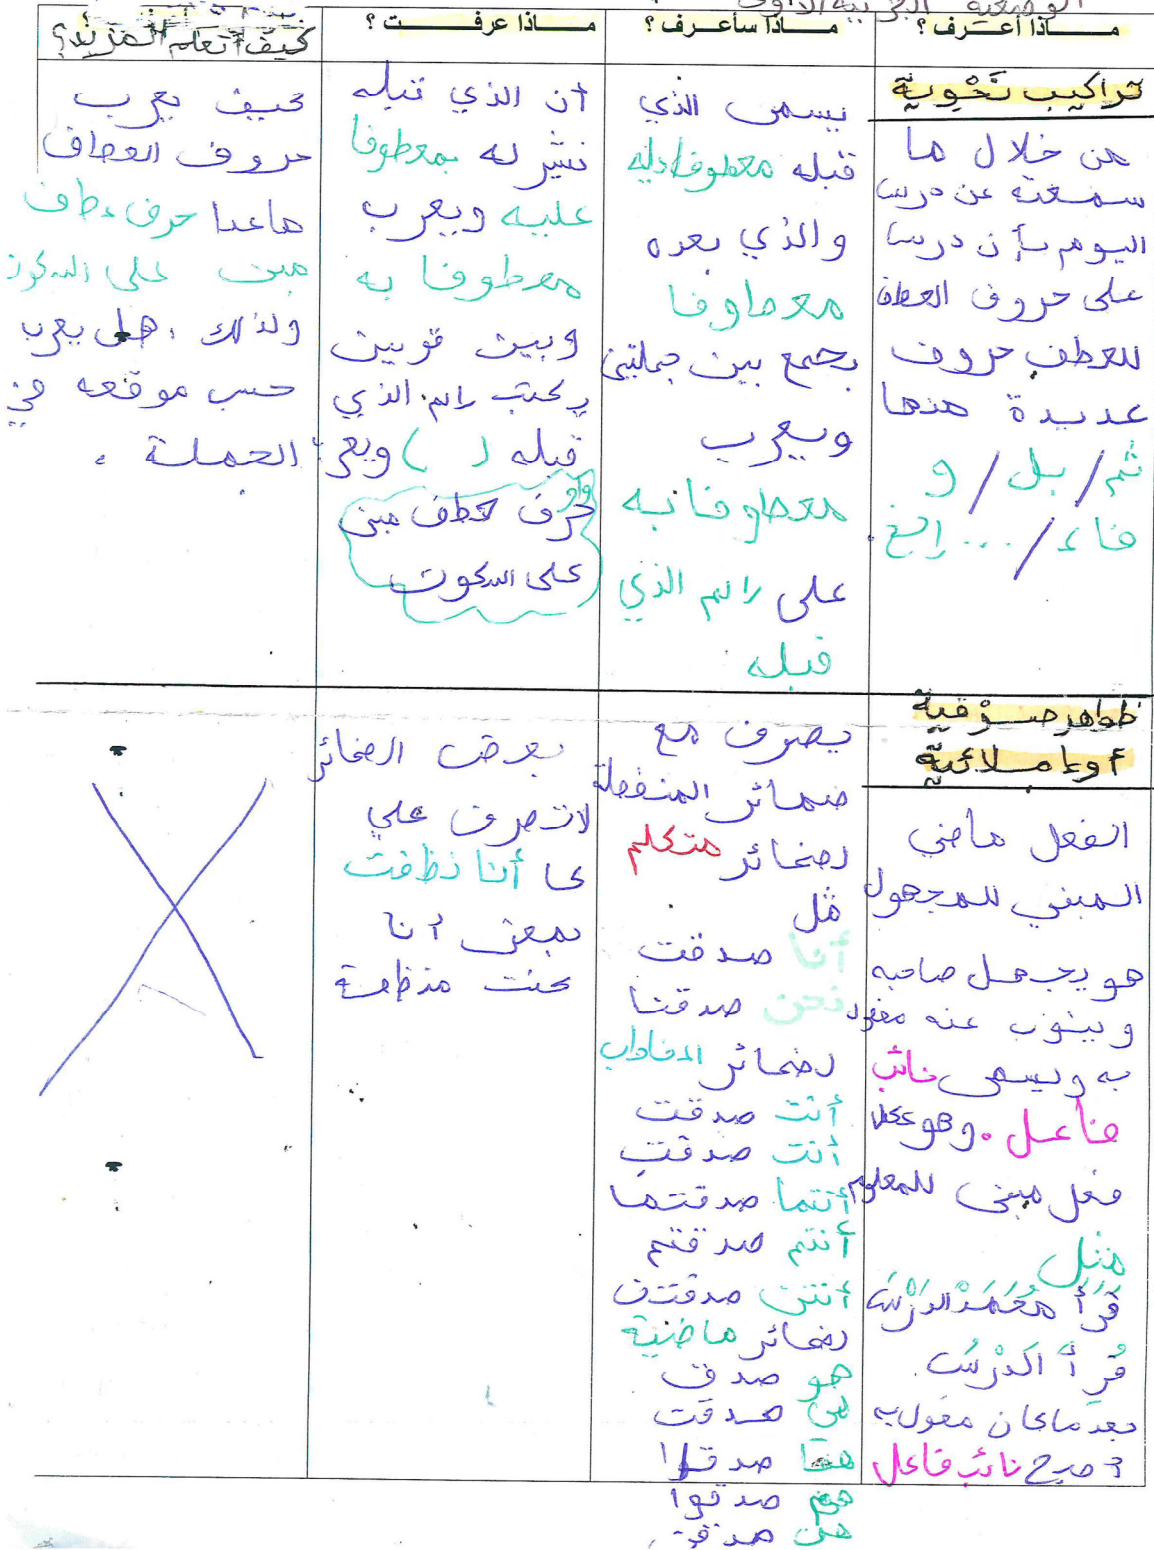 مــاذا أعــرف ؟
مــاذا سأعــرف ؟
مــاذا عرفــت ؟
كيف أتعلم المزيد؟
تراكيب نَحْوِية
من خلال ما
سمعته عن درسنا
اليوم بأن درسنا
على حروف العطف
للعطف حروف
عديدة منها
ثم / بل / و
فاء / ... إلخ.
يسمى الذي
قبله معطوفا
والذي بعده
معطوفا
يجمع بين جملتين
ويعرب
معطوفا به
على الذي
قبله
أن الذي قبله
نشير له بمعطوفا
عليه ويعرب
معطوفا به
وبين قوسين
يكتب الذي
قبله ( )
واو
حرف عطف مبني
على السكون
كيف يعرب
حروف العطف
ماعدا حرف عطف
مبني على السكون
ولذلك . هل يعرب
حسب موقعه في
الجملة .
ظواهر صــرْفية
أو إمــلائية
الفعل ماضي
المبني للمجهول
هو يجهل صاحبه
وينوب عنه مفعول
به ويسمى نائب
فاعل . وهو عكس
فعل مبني للمعلوم
مثل
قَرَأَ مُحَمَدْ الدَرْسَ
قُرِأَ الدَرْسُ
بعد ما كان مفعول به
أصبح نائب فاعل
يصرف مع
ضمائر المنفصلة
لضمائر متكلم
مثل
أنا صدقت
نحن صدقنا
لضمائر المخاطب
أنت صدقت
أنت صدقتِ
أنتما صدقتما
أنتم صدقتم
أنتن صدقتن
ضمائر ماضية
هو صدق
هي صدقت
هما صدقا
هم صدقوا
هن صدقن
بعض الضمائر
لا تصرف علي
كا أنا نظفت
بمعنى أنا
كنت منظفة